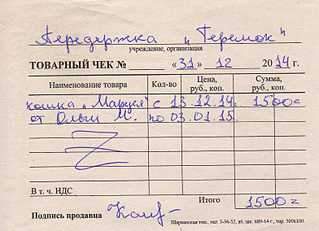 Передержка „Теремок"
учреждение, организация
ТОВАРНЫЙ ЧЕК № «31» 12 2014 г.
Наименование товара Кол-во Цена, руб., коп. Сумма, руб., коп.
кошка „Маруся" с 13.12.14. 1500=
от Ольги М. по 03.01.15.
В т. ч. НДС
Итого 1500=
Подпись продавца